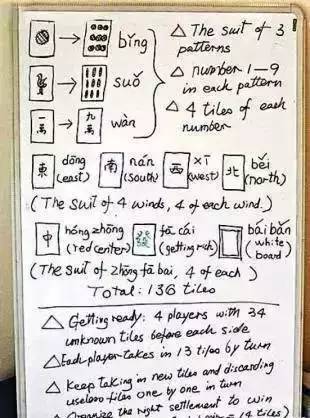 bǐng
suǒ
一萬 → 九萬 wàn
△ The suit of 3 patterns
△ number 1-9 in each pattern
△ 4 tiles of each number
東 dōng (east) 南 nán (south) 西 xī (west) 北 běi (north)
(The suit of 4 winds, 4 of each wind.)
中 hóng zhōng (red center) fā cái (getting rich) bái bǎn (white board)
(The suit of zhōng fā bai, 4 of each)
Total: 136 tiles
△ Getting ready: 4 players with 34
unknown tiles before each side
△ Each player takes in 13 tiles by turn
△ Keep taking in new tiles and discarding
useless tiles one by one in turn
△ Organize the right settlement to win
14 tiles)